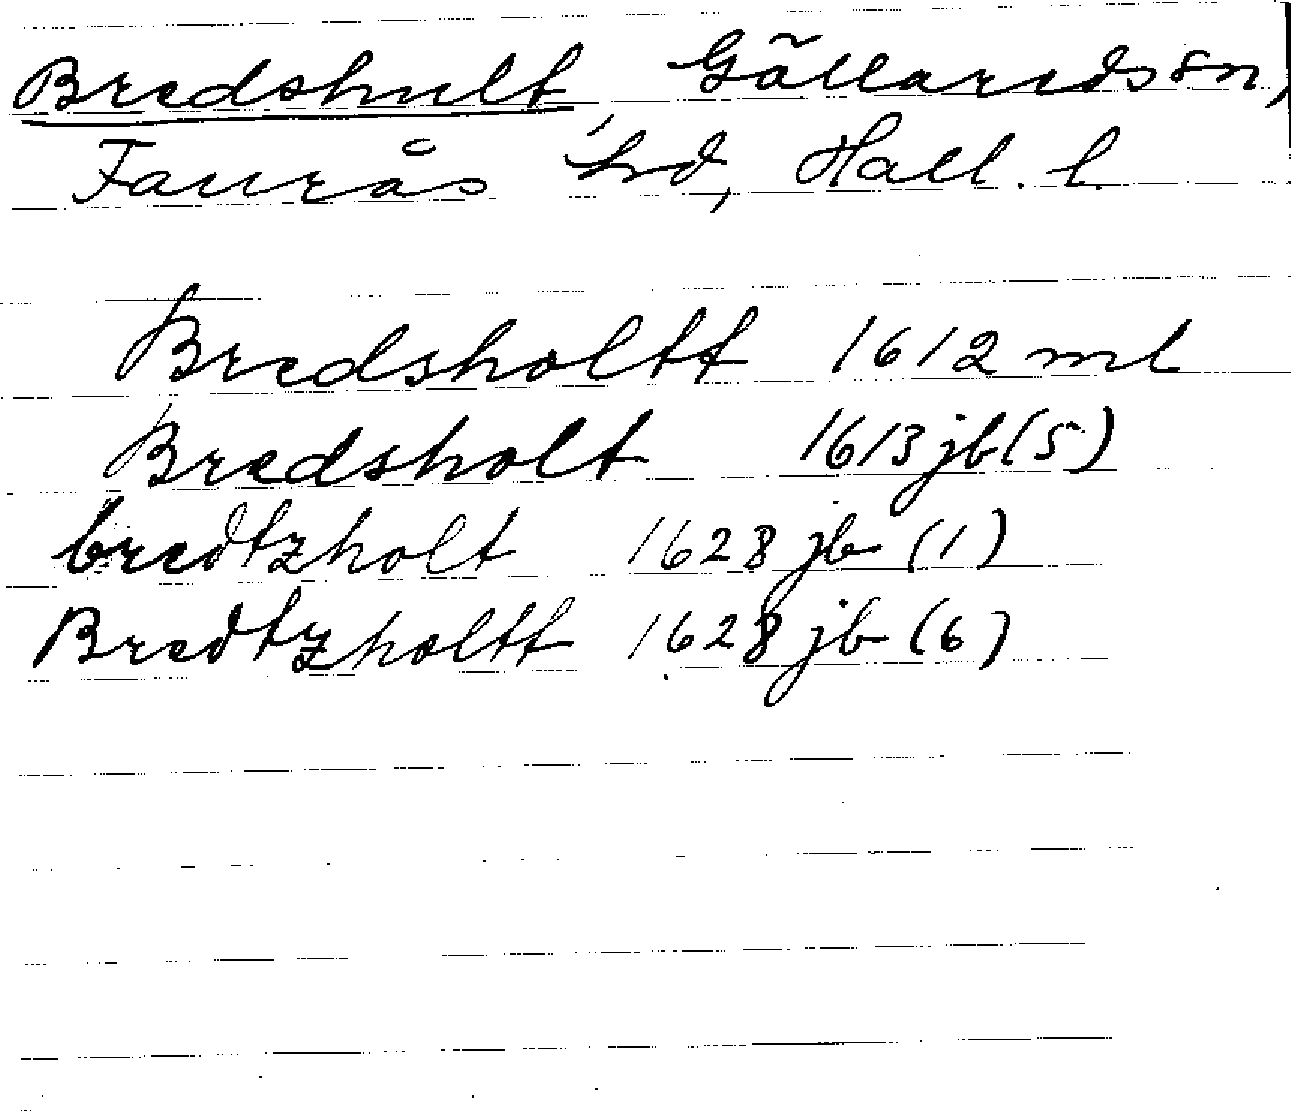 Bredshult Gällareds sn,
Faurås hd, Hall. l.
Bredsholtt 1612 ml
Bredsholt 1613 jb (5)
bredtzholt 1628 jb (1)
Bredtzholtt 1628 jb (6)